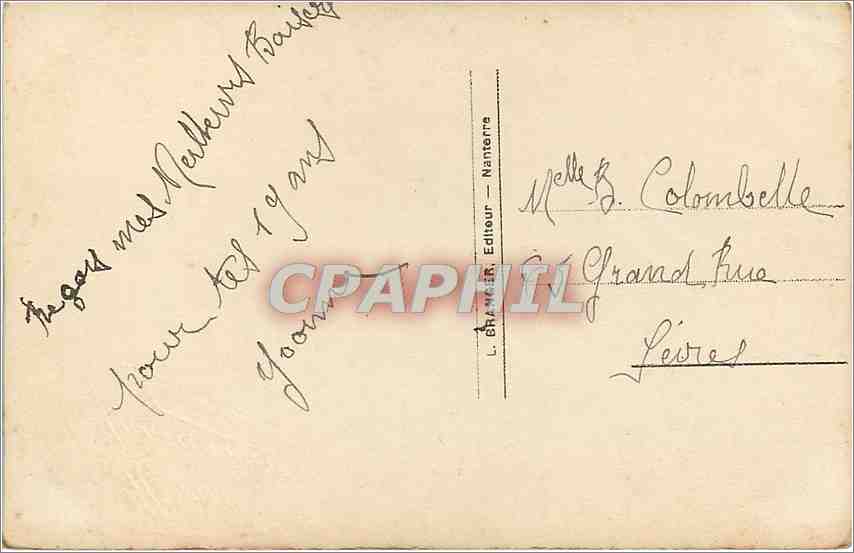 Reçois mes Meilleurs Baisers
pour tes 19 ans
Yvonne
L. BRANGER, Editeur — Nanterre
Melle B. Colombelle
Grand Rue
Sèvres
CPAPHIL